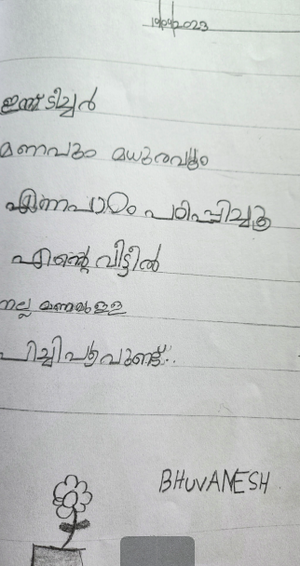 19/09/2023
ഇന്ന് ടീച്ചർ
മണവും മധുരവും
എന്നപാഠം പഠിപ്പിച്ചു
എന്റെ വീട്ടിൽ
നല്ല മണമുള്ള
പിച്ചിപൂവുണ്ട്..
BHUVANESH